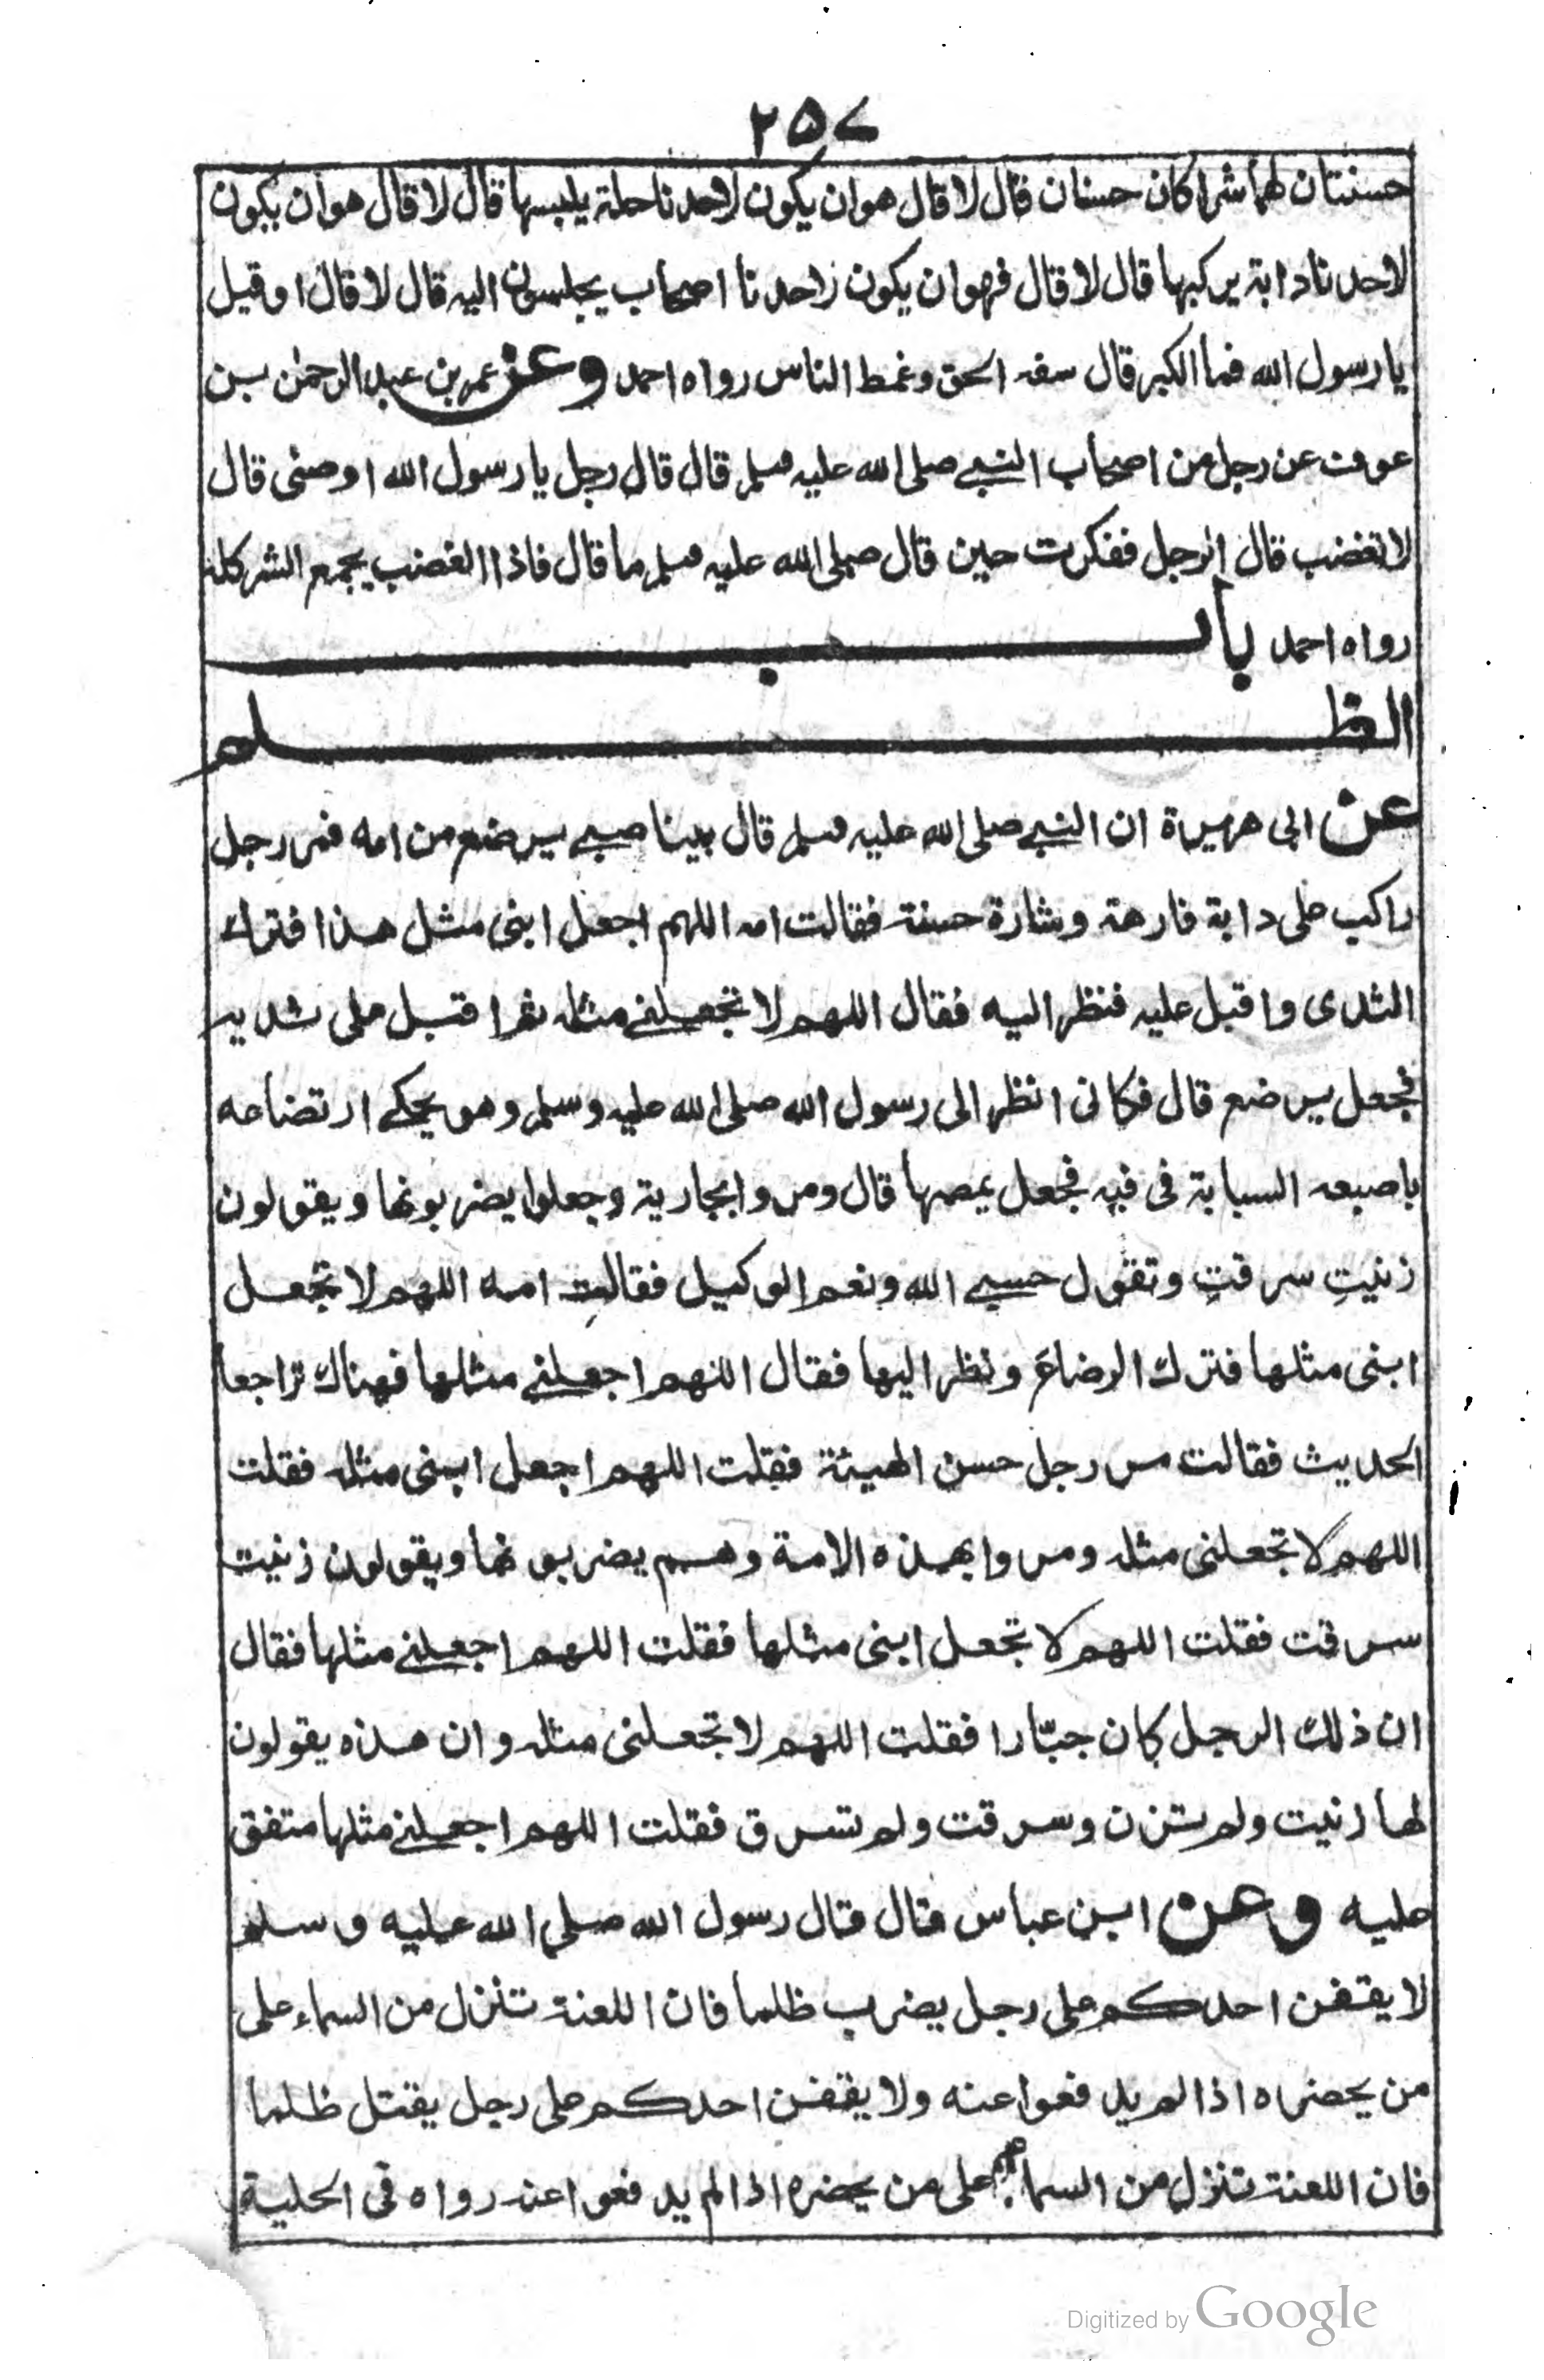 ٢٥٧
حسنتان لهما شراكان حسنان قال لا قال هو ان يكون لاحدنا حلة يلبسها قال لا قال هو ان يكون
لاحدنا دابة يركبها قال لا قال فهو ان يكون لاحدنا اصحاب يجلسون اليه قال لا قال او قيل
يا رسول الله فما الكبر قال سفه الحق وغمط الناس رواه احمد وعن عمر بن عبد الرحمٰن بن
عوف عن رجل من اصحاب النبي صلى الله عليه وسلم قال قال رجل يا رسول الله اوصنى قال
لا تغضب قال الرجل ففكرت حين قال صلى الله عليه وسلم ما قال فاذا الغضب يجمع الشر كله
رواه احمد باب
الظلم
عن ابى هريرة ان النبي صلى الله عليه وسلم قال بينا صبي يرضع من امه فمر رجل
راكب على دابة فارهة وشارة حسنة فقالت امه اللهم اجعل ابنى مثل هذا فترك
الثدى واقبل عليه فنظر اليه فقال اللهم لا تجعلني مثله ثم اقبل على ثديه
فجعل يرضع قال فكانى انظر الى رسول الله صلى الله عليه وسلم وهو يحكي ارتضاعه
باصبعه السبابة فى فيه فجعل يمصها قال ومروا بجارية وجعلوا يضربونها ويقولون
زنيتِ سرقتِ وتقول حسبي الله ونعم الوكيل فقالتِ امه اللهم لا تجعل
ابنى مثلها فترك الرضاعَ ونظر اليها فقال اللهم اجعلني مثلها فهناك تراجعا
الحديث فقالت مر رجل حسن الهيئة فقلت اللهم اجعل ابنى مثله فقلت
اللهم لا تجعلنى مثله ومروا بهذه الامة وهم يضربونها ويقولون زنيت
سرقت فقلت اللهم لا تجعل ابنى مثلها فقلت اللهم اجعلني مثلها فقال
ان ذلك الرجل كان جبّارا فقلت اللهم لا تجعلنى مثله وان هذه يقولون
لها زنيت ولم تزن وسرقت ولم تسرق فقلت اللهم اجعلني مثلها متفق
عليه وعن ابن عباس قال قال رسول الله صلى الله عليه وسلم
لا يقفن احدكم على رجل يضرب ظلما فان اللعنة تنزل من السماء على
من يحضراه اذا لم يدفعوا عنه ولا يقفن احدكم على رجل يقتل ظلما
فان اللعنة تنزل من السماء على من يحضره اذا لم يدفعوا عنه رواه فى الحلية
Digitized by Google